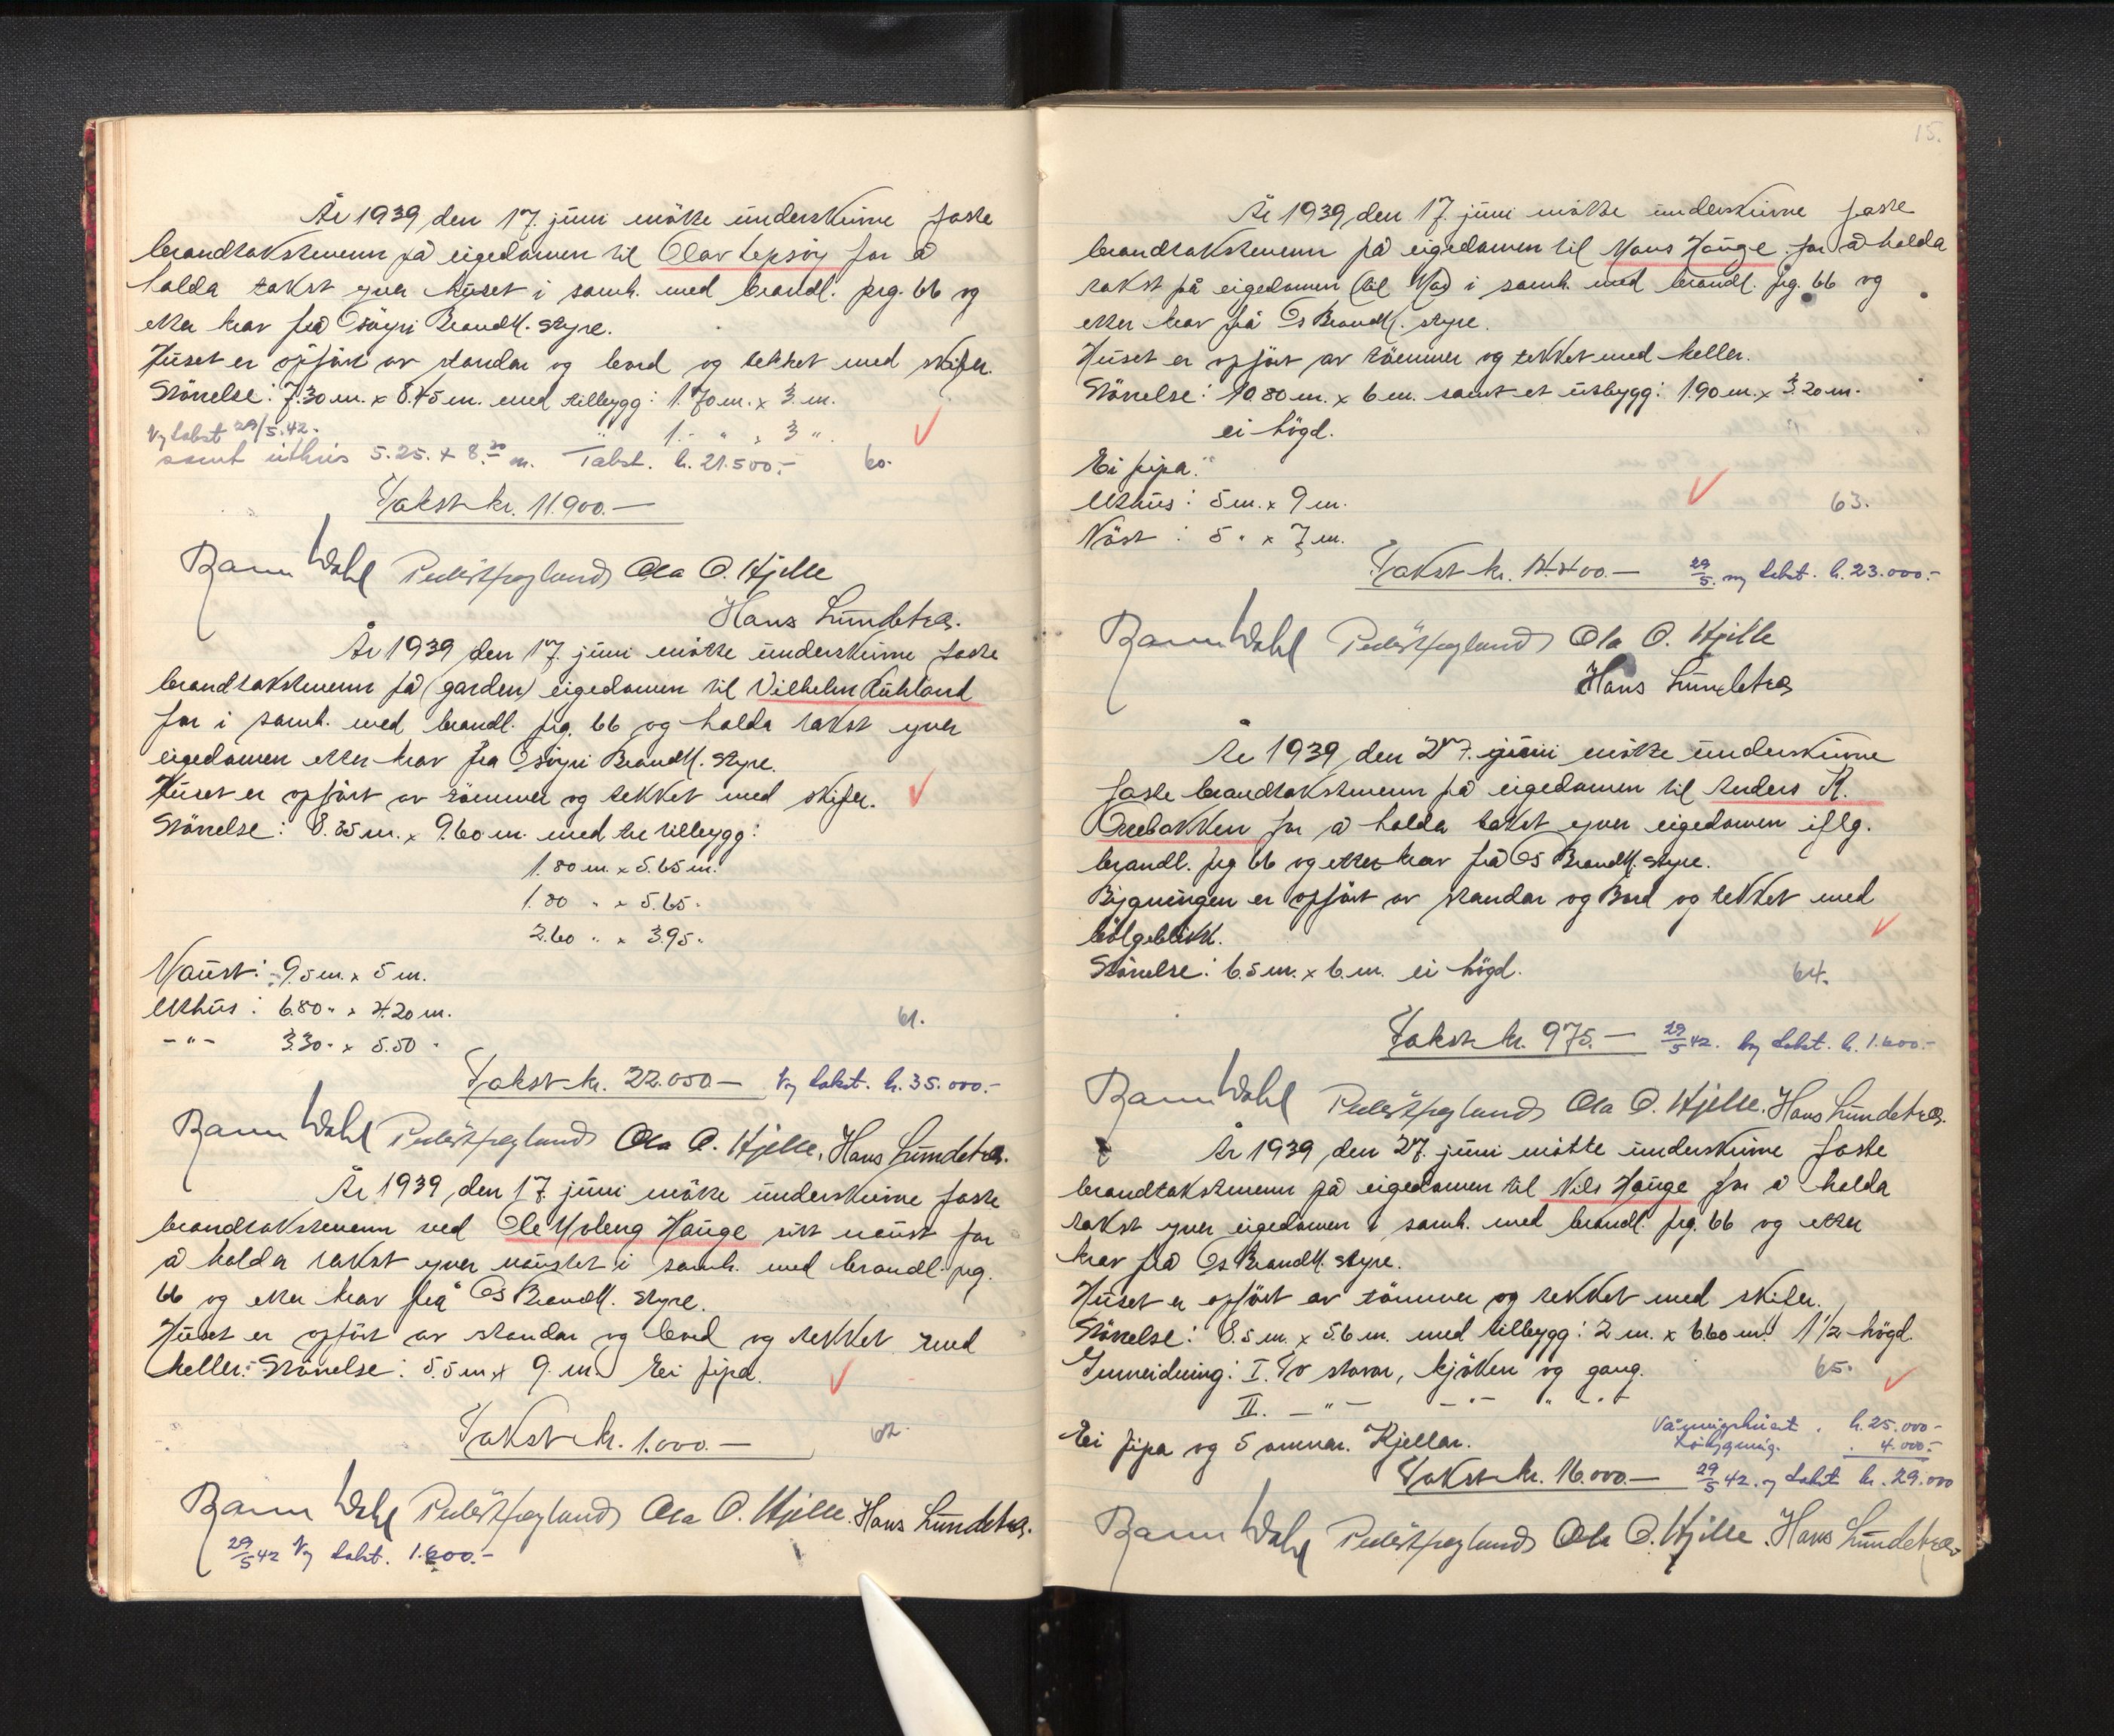 År 1939, den 17. juni mötte underskrivne faste
brandtakstmenn på eigedomen til Olav Lepsöy for å
halda takst yver huset i samh. med brandl. prg. 66 og
etter krav frå Osöyri Brandk. styre.
Huset er opfört av standar og bord og tekket med skifer.
Störrelse: 7.30 m. x 8.45 m. med tilbygg: 1.70 m. x 3. m.
Ny takst 29/5.42. " 1.- " x 3 ".
samt uthus 5.25. x 8.20 m. Takst. kr. 21.500.- 60.
Takst kr. 11.900.-
Wahl Ola O. Hjelle
Hans Lundetræ.
År 1939, den 17. juni mötte underskrivne faste
brandtakstmenn på (garden) eigedomen til Vilhelm Rühland
for i samh. med brandl. prg. 66 og halda takst yver
eigedomen etter krav fra Osöyri Brandk. styre.
Huset er opfört av tömmer og tekket med skifer.
Störrelse: 8.35 m. x 9.60 m. med tre tilbygg:
1.80 m. x 5.65 m.
1.80 " x 5.65 "
2.60 " x 3.95 "
Naust: 9.5 m. x 5 m.
Uthus: 6.80 " x 4.20 m. 61.
-"- 3.30 " x 5.50 "
Takst kr. 22.050.- Ny takst. kr. 35.000.-
Wahl Ola O. Hjelle. Hans Lundetræ.
År 1939, den 17. juni mötte underskrivne faste
brandtakstmenn ved Ole Moberg Hauge sitt naust for
å halda takst yver naustet i samh. med brandl. prg.
66 og etter krav frå Os Brandk. styre.
Huset er opfört av standar og bord og tekket med
heller. Störrelse: 5.5 m x 9. m. Ei pipa.
Takst kr. 1.000.- 62.
Wahl Ola O. Hjelle. Hans Lundetræ.
29/5 42 Ny takst. 1.600.-
15.
År 1939, den 17. juni mötte underskrivne faste
brandtakstmenn på eigedomen til Mons Hauge for å halda
takst på eigedomen (til Mo) i samh. med brandl. prg. 66 og
etter krav frå Os Brandk. styre.
Huset er opfört av tömmer og tekket med heller.
Störrelse: 10.80 m. x 6 m. samt et utbygg: 1.90 m. x 3.20 m.
ei högd.
Ei pipa.
Uthus: 5 m. x 9 m. 63.
Nöst: 5 " x 7 m.
Takst kr. 14.400.- 29/5. ny takst. kr. 23.000.-
Wahl Ola O. Hjelle
Hans Lundetræ
År 1939, den 27. juni mötte underskrivne
faste brandtakstmenn på eigedomen til Anders K.
Orrebakken for å halda takst yver eigedomen iflg.
brandl. prg 66 og etter krav frå Os Brandk. styre.
Bygningen er opfört av standar og Bord og tekket med
bölgeblikk.
Störrelse: 6.5 m. x 6. m. ei högd. 64.
Takst kr. 975.- 29/5 42. Ny takst. kr. 1.600.-
Wahl Ola O. Hjelle. Hans Lundetræ.
År 1939, den 27. juni mötte underskrivne faste
brandtakstmenn på eigedomen til Nils Hauge for å halda
takst yver eigedomen i samh. med brandl. prg. 66 og etter
krav frå Os Brandk. styre.
Huset er opfört av tömmer og tekket med skifer.
Störrelse: 8.5 m. x 5.6 m. med tilbygg: 2 m. x 6.60 m. 1 1/2 högd.
Innreidning: I. To stovor, kjöken og gang. 65.
II. -"- -"- " -"-
Ei pipa og 5 omnar. Kjellar. Våningshuset. kr. 25.000-
4.000.-
Takst kr. 16.000.- 29/5 42. ny takst kr. 29.000
Wahl Ola O. Hjelle. Hans Lundetræ